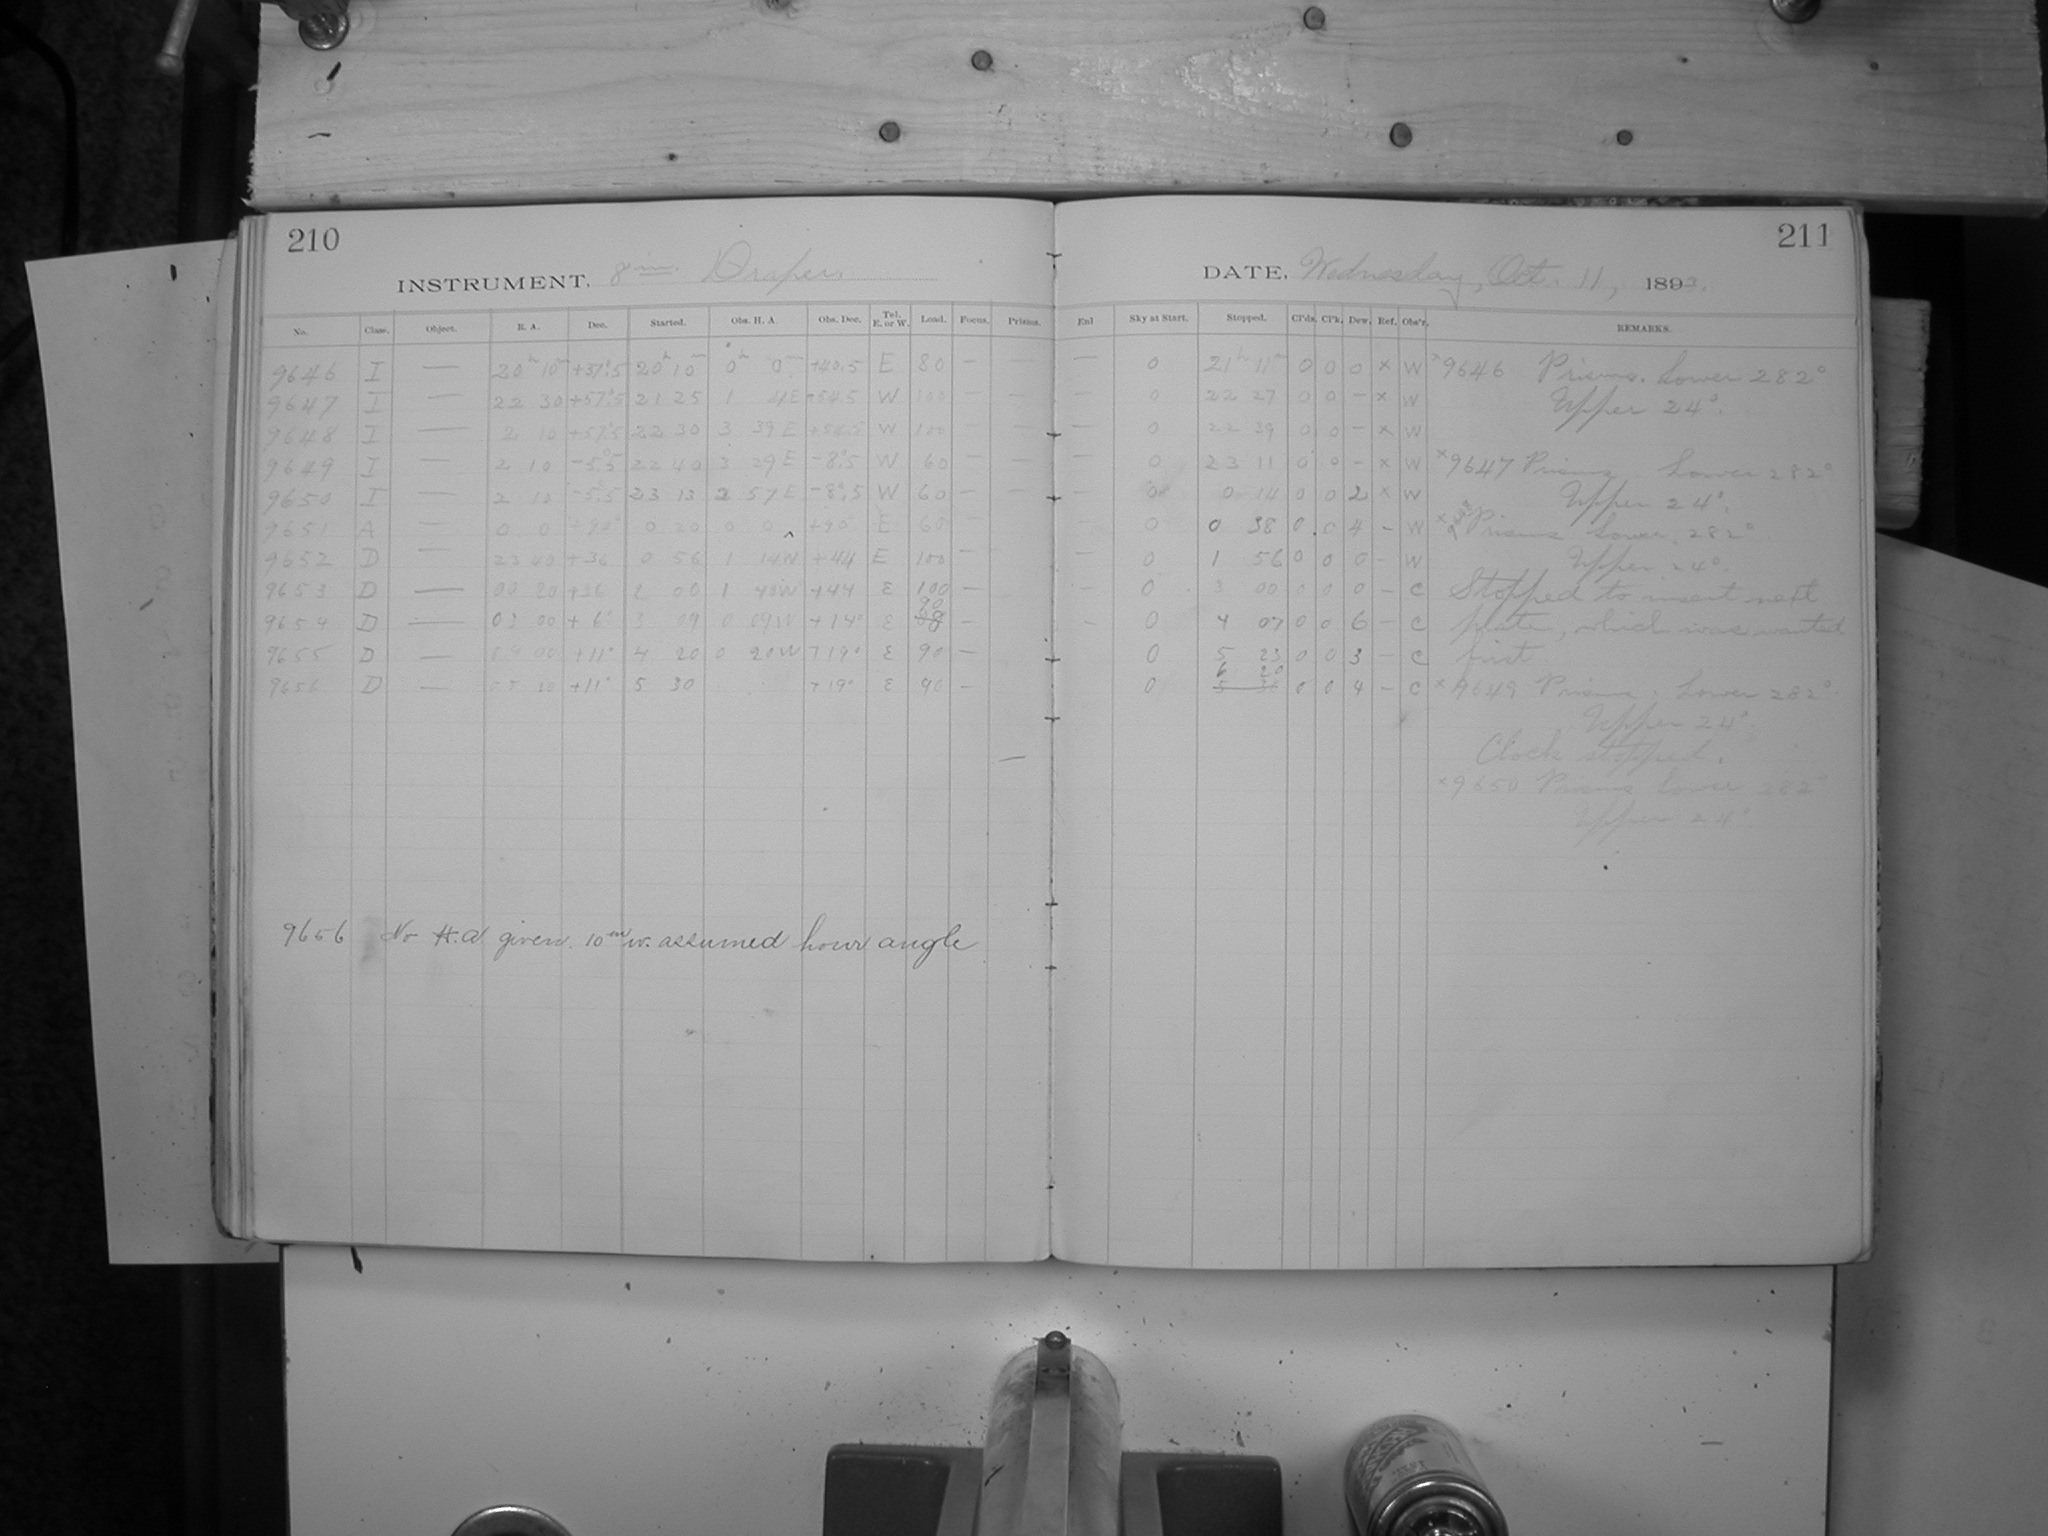 210
INSTRUMENT. 8 in. Draper
No. Class. Object. R. A. Dec. Started. Obs. H. A. Obs. Dec. Tel. E. or W. Load. Focus. Prisms.
9646 I — 20h 10m +37°.5 20 10m 0h 0m +40.5 E 80 — —
9647 I — 22 30 +57°.5 21 25 1 4E +54.5 W 100 — —
9648 I — 2 10 +57°.5 22 30 3 39 E W 100 — —
9649 I — 2 10 -5°.5 22 40 3 29 E -8°.5 W 60 — —
9650 I — 2 10 -5°.5 23 13 2 57 E -8°.5 W 60 — —
9651 A — 0 0 +90° 0 20 0 0 +90° E 60 —
9652 D — 23 40 +36 0 56 1 14W +44 E 100 —
9653 D — 00 20 +36 2 00 1 40W +44 E 100 —
9654 D — 03 00 +6° 3 09 0 09W +14° E 90 —
9655 D — 04 00 +11° 4 20 0 20W +19° E 90 —
9656 D — 05 20 +11° 5 30 +19° E 90 —
9656 No H.A given. 10m w. assumed hour angle
211
DATE, Wednesday, Oct. 11, 1893.
Enl Sky at Start. Stopped. Cl'ds. Cl'k. Dew. Ref. Obs'r. REMARKS.
— 0 21h 11m 0 0 0 × W ×9646 Prisms. Lower 282°
— 0 22 27 0 0 — × W Upper 24°.
— 0 22 39 0 0 — × W
— 0 23 11 0 0 — × W ×9647 Prisms Lower 282°
— 0 0 14 0 0 2 × W Upper 24°.
— 0 0 38 0 0 4 — W × 9648 Prisms Lower 282°
— 0 1 56 0 0 0 — W Upper 24°.
— 0 3 00 0 0 0 — C Stopped to insert next
— 0 4 07 0 0 6 — C plate, which was wanted
0 5 23 0 0 3 — C first
0 6 20 0 0 4 — C ×9649 Prisms. Lower 282°.
Upper 24°.
Clock stopped.
×9650 Prisms Lower 282°
Upper 24°